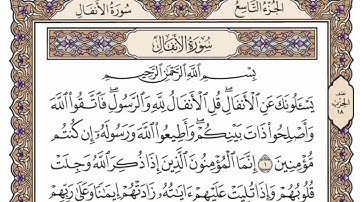 سُورَةُ الأَنفَالِ
الجُزْءُ التَّاسِعُ
سُورَةُ الأَنفَالِ
بِسْمِ اللَّهِ الرَّحْمَٰنِ الرَّحِيمِ
يَسْـَٔلُونَكَ عَنِ ٱلْأَنفَالِ ۖ قُلِ ٱلْأَنفَالُ لِلَّهِ وَٱلرَّسُولِ ۖ فَٱتَّقُوا۟ ٱللَّهَ
وَأَصْلِحُوا۟ ذَاتَ بَيْنِكُمْ ۖ وَأَطِيعُوا۟ ٱللَّهَ وَرَسُولَهُۥٓ إِن كُنتُم
مُّؤْمِنِينَ ١ إِنَّمَا ٱلْمُؤْمِنُونَ ٱلَّذِينَ إِذَا ذُكِرَ ٱللَّهُ وَجِلَتْ
قُلُوبُهُمْ وَإِذَا تُلِيَتْ عَلَيْهِمْ ءَايَٰتُهُۥ زَادَتْهُمْ إِيمَٰنًا وَعَلَىٰ رَبِّهِمْ
الحِزْب
١٨